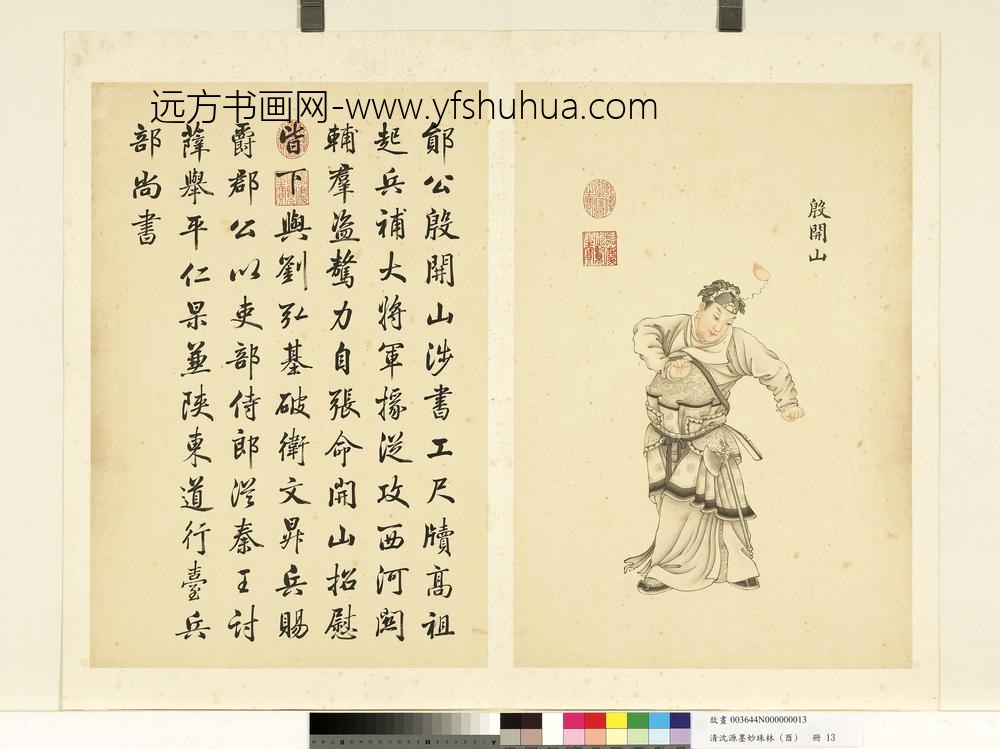 远方书画网-www.yfshuhua.com
殷開山
鄖公殷開山涉書工尺牘高祖
起兵補大將軍掾從攻西河關
輔羣盜驁力自張命開山招慰
皆下與劉弘基破衛文昇兵賜
爵郡公以吏部侍郎從秦王討
薛舉平仁杲兼陝東道行臺兵
部尚書
故畫 003644N000000013
清沈源墨妙珠林（酉） 冊 13